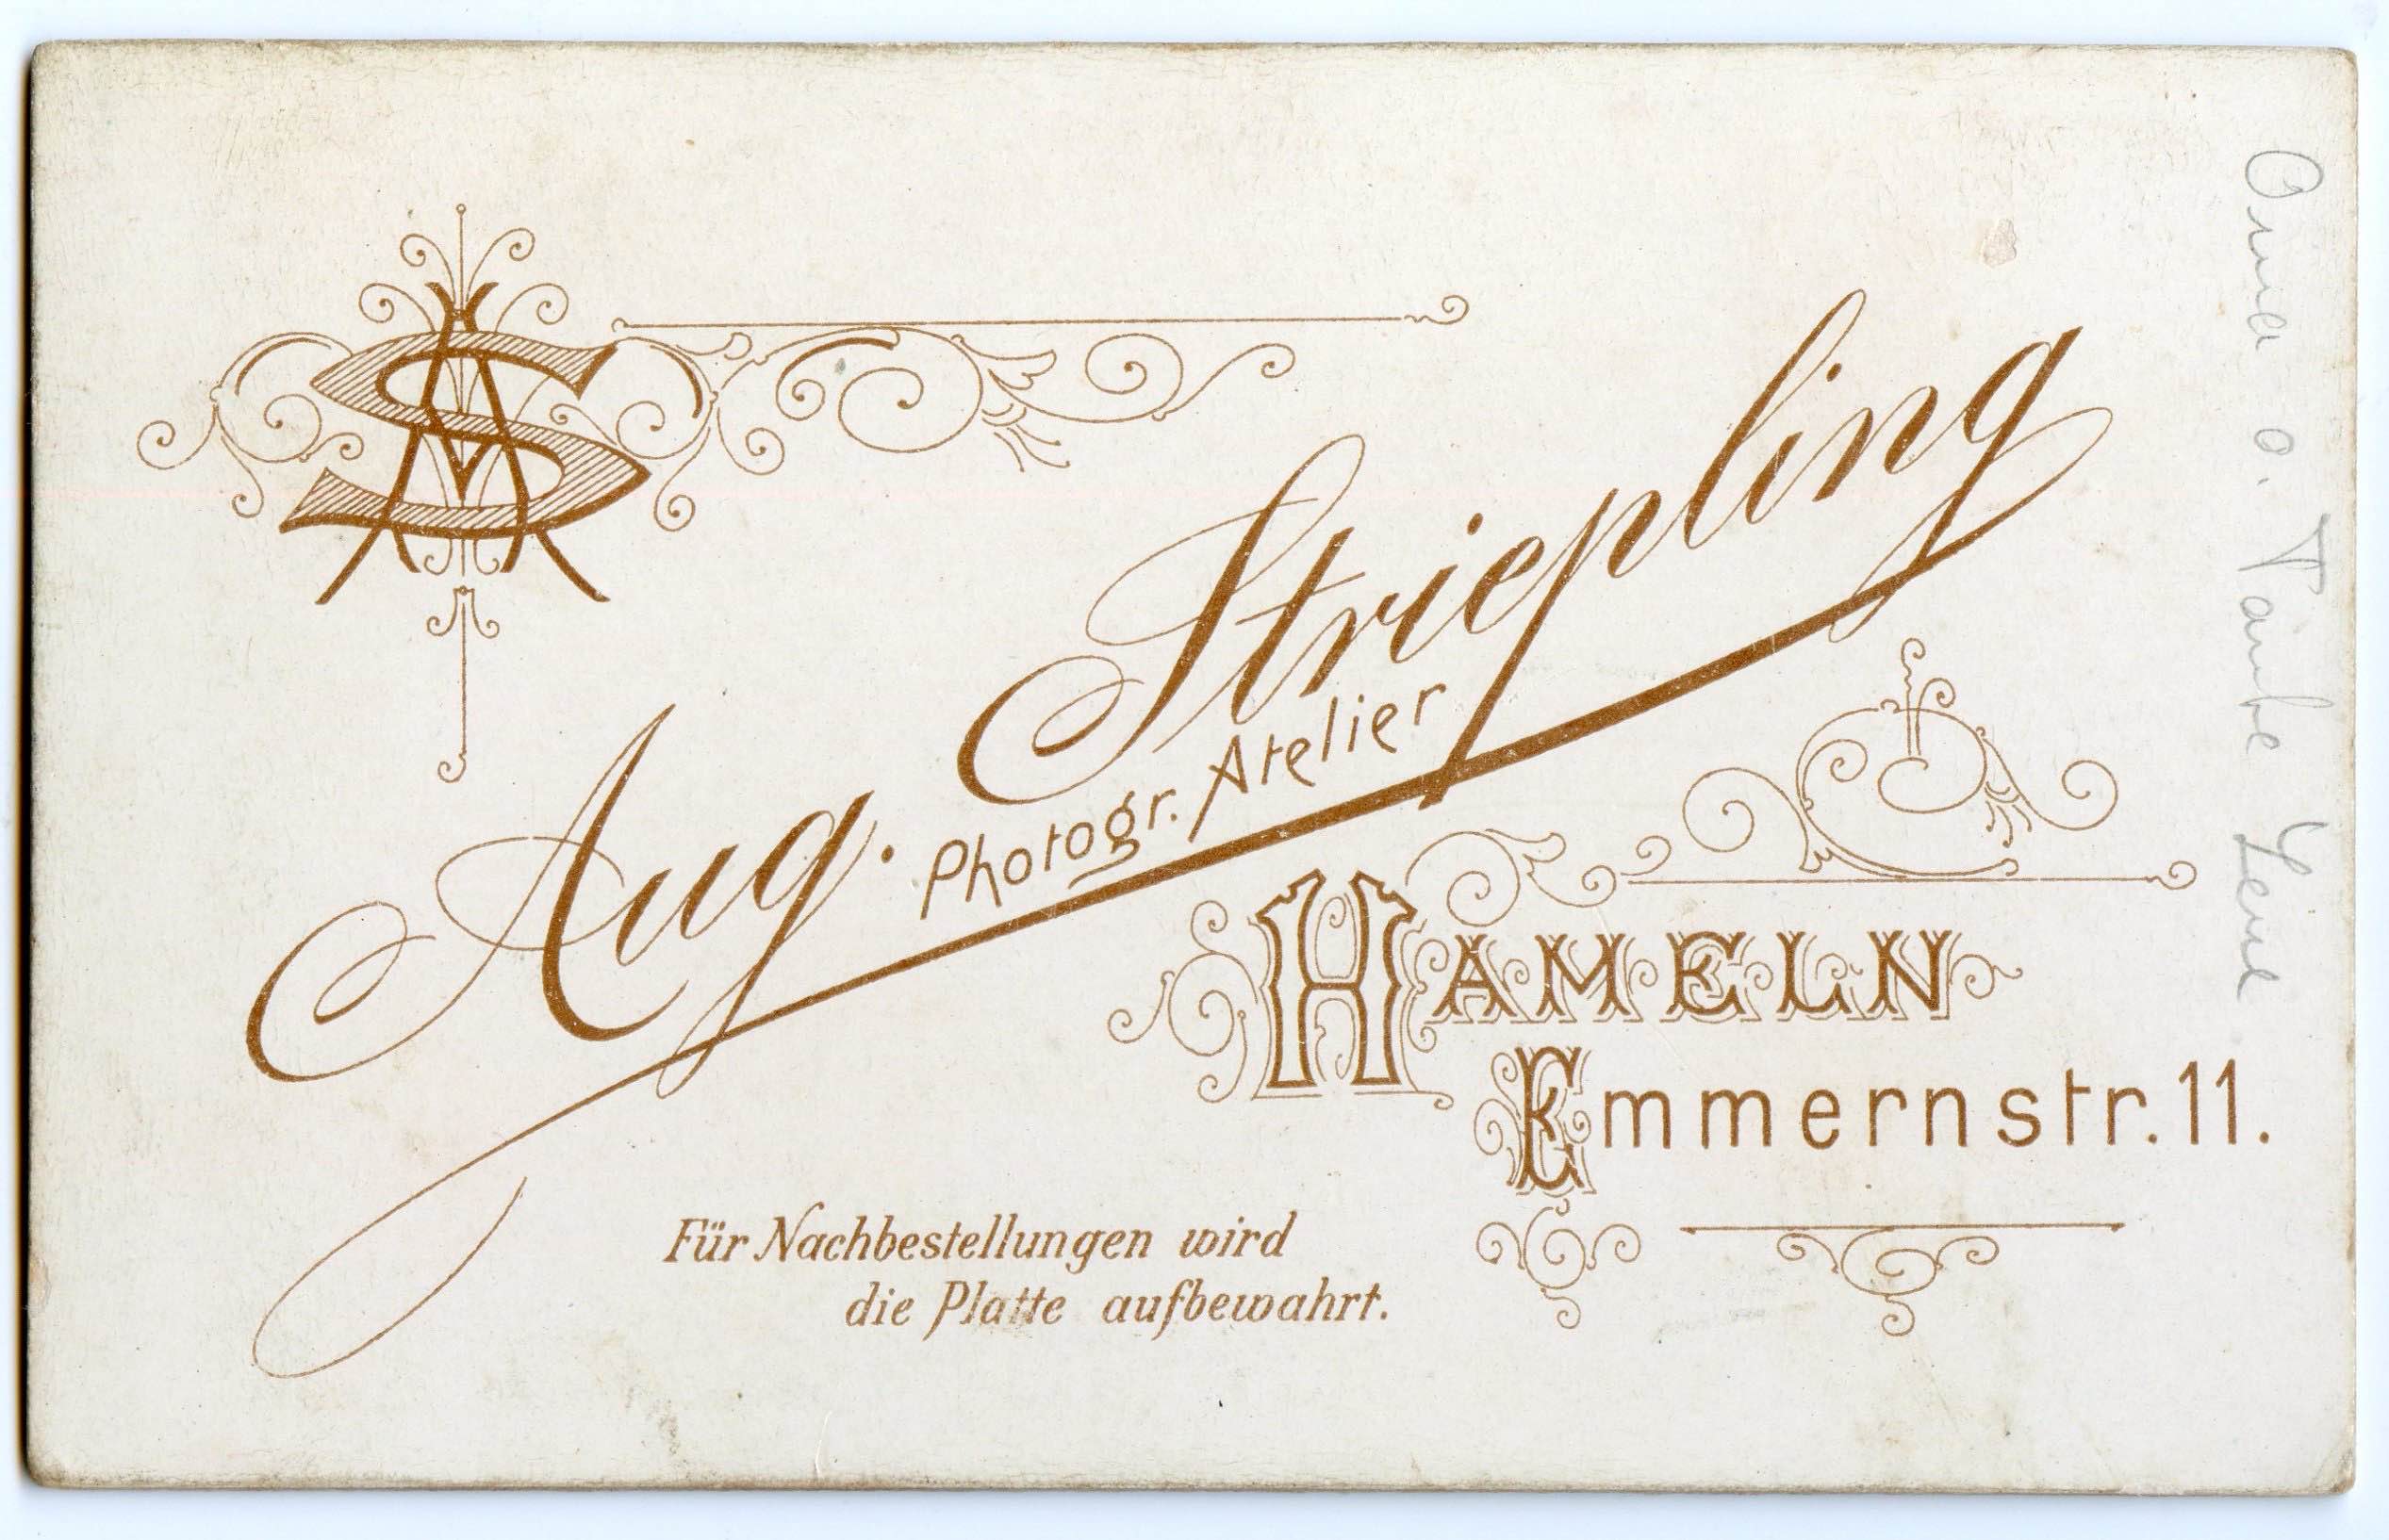 AS
Aug. Striepling
Photogr. Atelier
HAMELN
Emmernstr. 11.
Für Nachbestellungen wird
die Platte aufbewahrt.
o. Taube